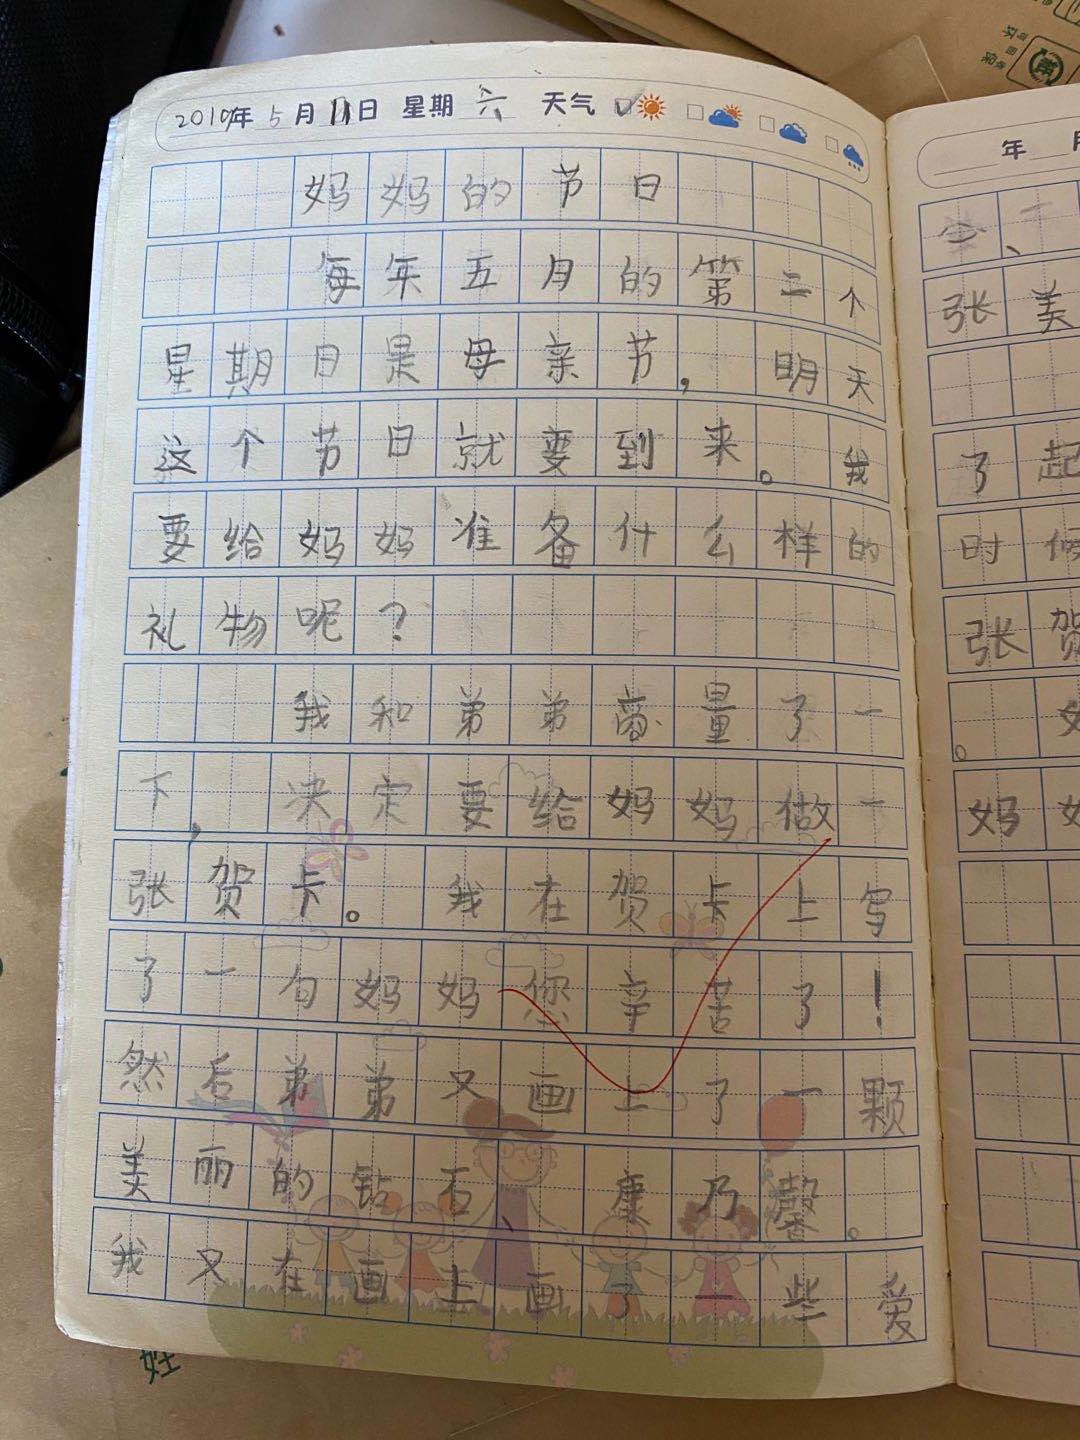 2019年5月11日 星期六 天气
妈妈的节日
每年五月的第二个
星期日是母亲节，明天
这个节日就要到来。我
要给妈妈准备什么样的
礼物呢？
我和弟弟商量了一
下，决定要给妈妈做一
张贺卡。我在贺卡上写
了一句妈妈您辛苦了！
然后弟弟又画上了一颗
美丽的钻石、康乃馨。
我又在画上画了一些爱
年 月
张美
了起
时候
张贺
。
妈